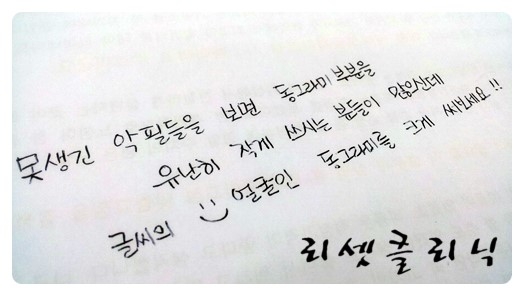 못생긴 악필들을 보면 동그라미부분을
유난히 작게 쓰시는 분들이 많으신데
글씨의 얼굴인 동그라미를 크게 써보세요!!
리셋클리닉